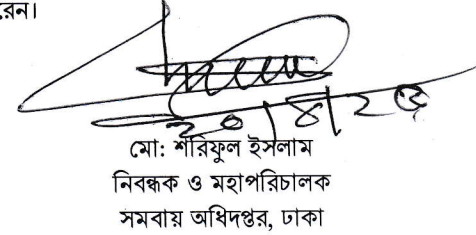 রেন।
মো: শরিফুল ইসলাম
নিবন্ধক ও মহাপরিচালক
সমবায় অধিদপ্তর, ঢাকা